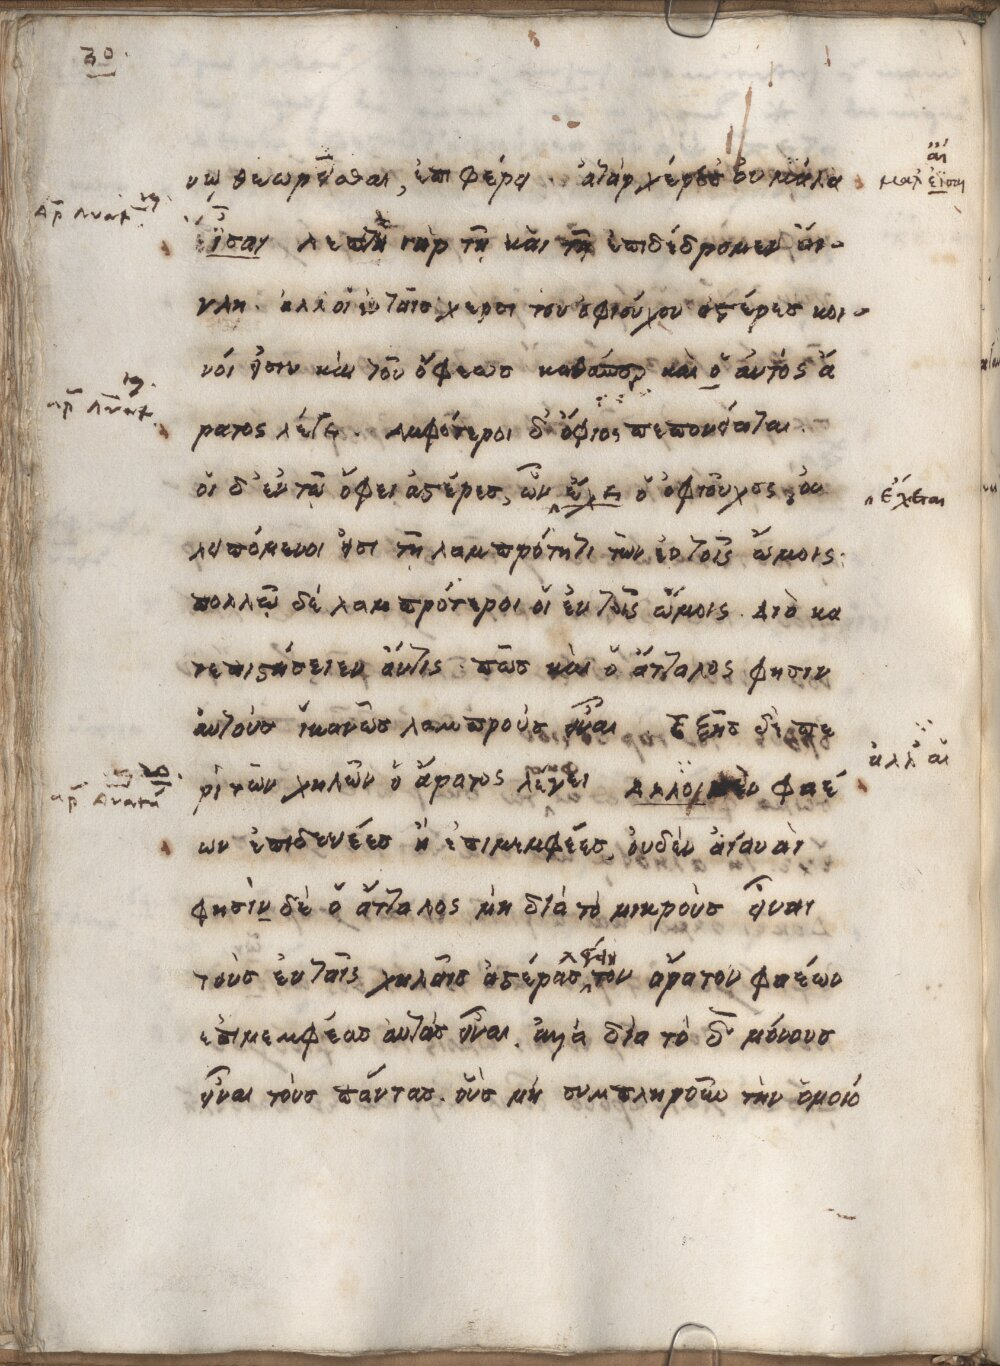 30
νῳ θεωρεῖσθαι, ἐπιφέρει. ἀτὰρ χέρες οὐ μάλα
εἶσαι λεπτὴ γὰρ τῇ καὶ τῇ ἐπιδέδρομεν αἴ-
γλη. ἀλλ οἱ ἐν ταῖς χερσὶ τοῦ ὀφιούχου ἀστέρες κοι-
νοί εἰσιν καὶ τοῦ ὄφεως καθάπερ καὶ ὁ αὐτός ἄ
ρατος λέγει. Ἀμφότεροι δ' ὄφιος πεπονείαται.
οἱ δ' ἐν τῷ ὄφει ἀστέρες, ὧν ἔχει ὁ ὀφιοῦχος, οὐ
λειπόμενοι εἰσι τῇ λαμπρότητι τῶν ἐν τοῖς ὤμοις.
πολλῷ δέ λαμπρότεροι οἱ ἐν τοῖς ὤμοις. Διὸ κα
τεπιστήσειεν ἄν τις πῶς καὶ ὁ ἄτταλος φησιν
αὐτοὺς ἱκανῶς λαμπροὺς εἶναι Ἑξῆς δὲ πε
ρὶ τῶν χηλῶν ὁ ἄρατος λέγει Ἀλλοι μὲν φαέ
ων ἐπιδευέες ἢ ἐπιμεμφέες, οὐδὲν ἀγαυαὶ
φησὶν δὲ ὁ ἄτταλος μὴ διὰ τὸ μικροὺς εἶναι
τοὺς ἐν ταῖς χηλαῖς ἀστέρας λέγειν τον ἄρατον φαέων
ἐπιμεμφέας αὐτὰς εἶναι. ἀλλὰ διὰ τὸ δ μόνους
εἶναι τοὺς πάντας. οὓς μὴ συμπληροῦν τὴν ὁμοιό
ἔχεται
ἀλλ' αἱ